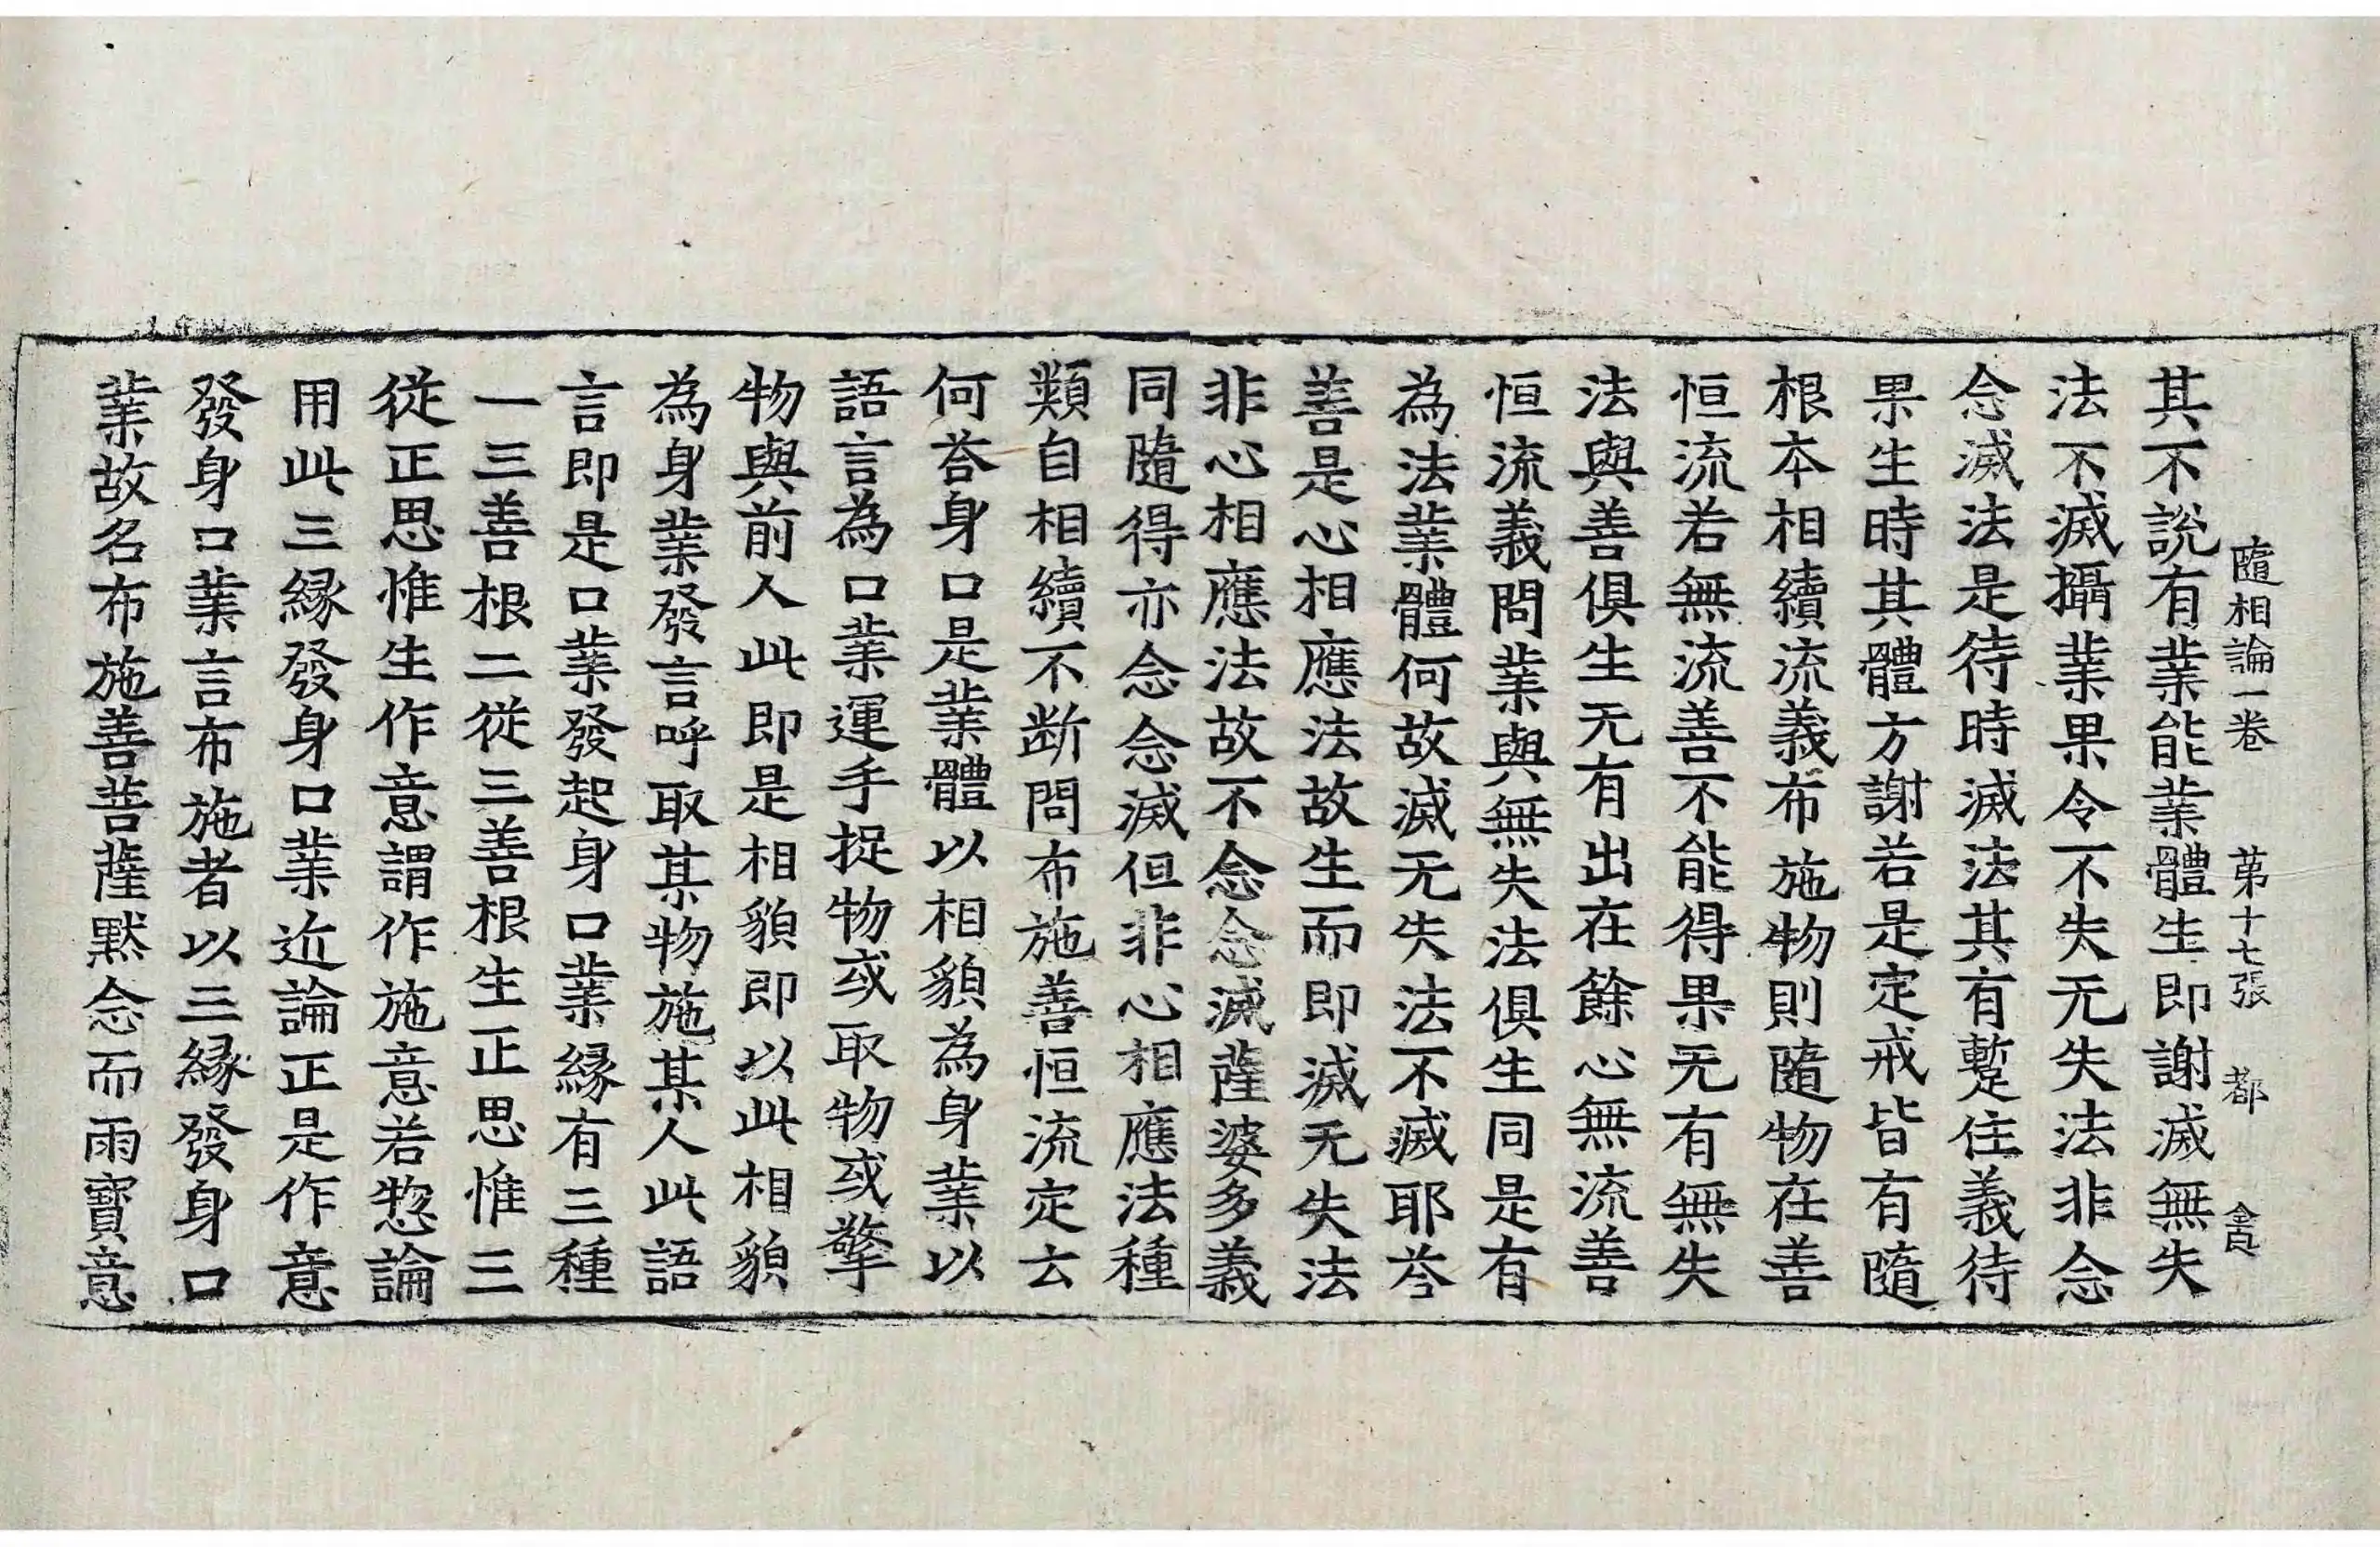 隨相論一卷 苐十七張 都
其不說有業能業體生即謝滅無失
法不滅攝業果令不失无失法非念
念滅法是待時滅法其有蹔住義待
果生時其體方謝若是定戒皆有隨
根本相續流義布施物則隨物在善
恒流若無流善不能得果无有無失
法與善俱生无有出在餘心無流善
恒流義問業與無失法俱生同是有
為法業體何故滅无失法不滅耶荅
善是心相應法故生而即滅无失法
非心相應法故不念念滅薩婆多義
同隨得亦念念滅但非心相應法種
類自相續不斷問布施善恒流定云
何荅身口是業體以相貌為身業以
語言為口業運手捉物或取物或擎
物與前人此即是相貌即以此相貌
為身業發言呼取某物施某人此語
言即是口業發起身口業緣有三種
一三善根二從三善根生正思惟三
從正思惟生作意謂作施意若惣論
用此三緣發身口業近論正是作意
發身口業言布施者以三緣發身口
業故名布施善菩薩默念而雨寶意